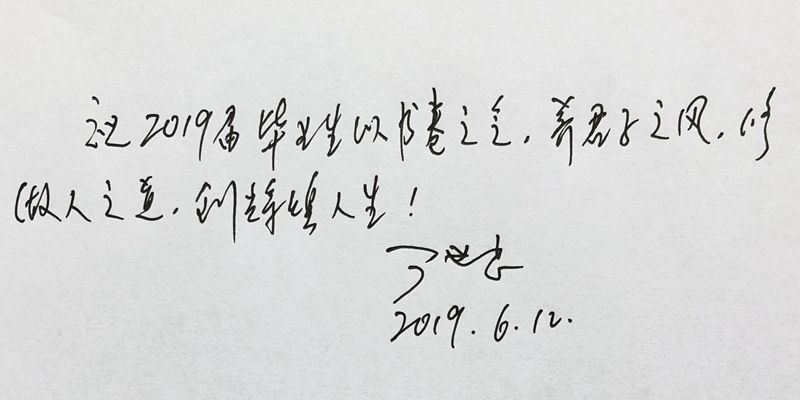 祝2019届毕业生以书卷之气,养君子之风,修
做人之道,创辉煌人生!
2019.6.12.